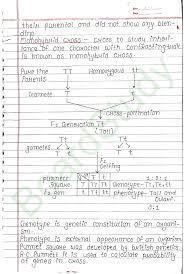 their parental and did not show any blen-
ding.
Monohybrid cross - Cross to study inherit-
ance of one character with contrasting trait
is known as monohybrid cross.
Pure line TT Homozygous tt
Parents
Gametes T t
Cross-pollination
F1 Generation Tt
(Tall)
gametes T t T t
F2
Selfing
punnett T t
square T TT Tt Genotype - TT, Tt, tt
F2 gen t Tt tt phenotype - Tall and
Dwarf
Genotype is genetic constitution of an organi-
sm.
Phenotype is external appearance of an organism.
Punnet square was developed by british geneticist
R.C. Punnett. It is used to calculate probability
of genes to cross.